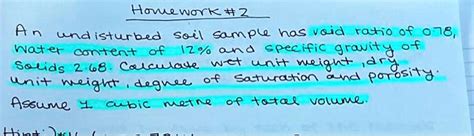 Homework #2
An undisturbed soil sample has void ratio of 0.78,
water content of 12% and specific gravity of
Solids 2.68. Calculate wet unit weight, dry
unit weight, degree of saturation and porosity.
Assume 1 cubic metre of total volume.
Hint: